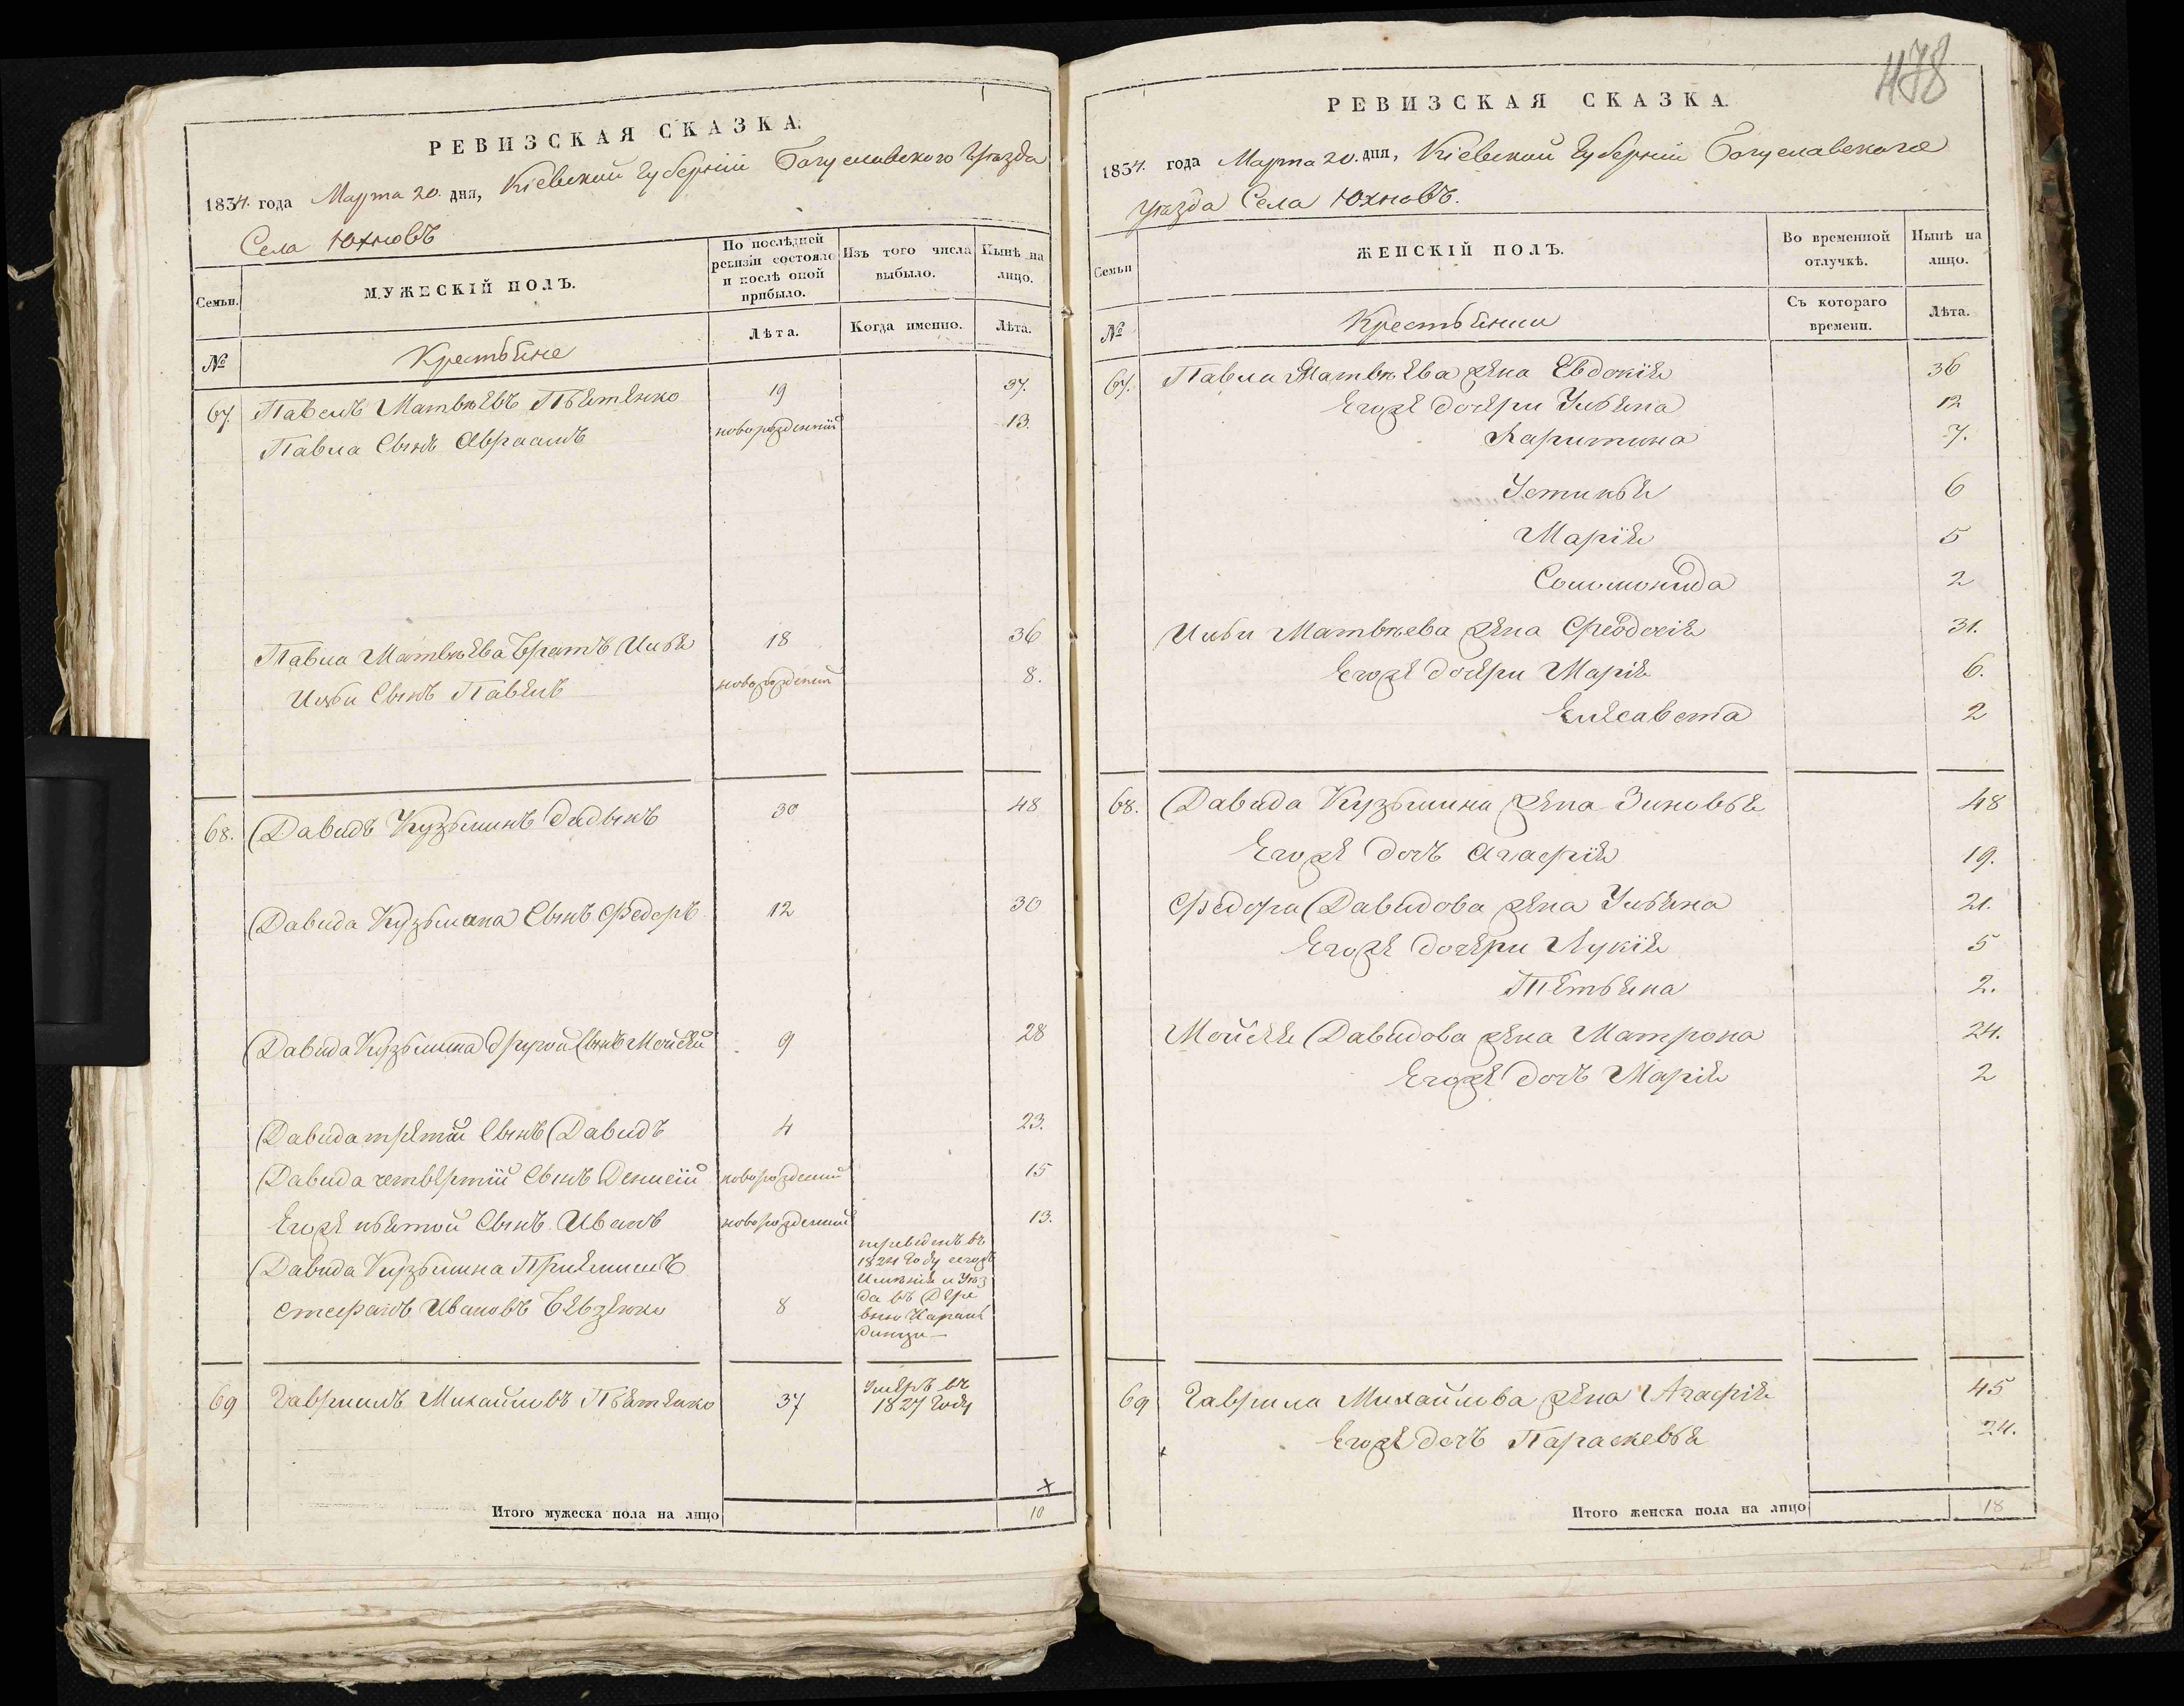 РЕВИЗСКАЯ СКАЗКА.
1834. года Марта 20. дня, Кіевской Губерніи Богуславского Уѣзда
Села Юхновъ
Семьи.
МУЖЕСКІЙ ПОЛЪ.
По послѣдней ревизіи состояло и послѣ оной прибыло.
Изъ того числа выбыло.
Нынѣ на лицо.
№
Крестьяне
Лѣта.
Когда именно.
Лѣта.
67. Павелъ Матвѣевъ Пьятенко 19 37.
Павла Сынъ Авраамъ новорожденній 13.
Павла Матвѣева Братъ Илья 18 36
Ильи Сынъ Павелъ новорожденій 8.
68. Давидъ Кузьминъ Дидыкъ 30 48
Давида Кузьмина Сынъ Федоръ 12 30
Давида Кузьмина другой Сынъ Мойсей 9 28
Давида третій Сынъ Давидъ 4 23.
Давида четвертій Сынъ Денисій новорожденій 15
Егоже пьятой Сынъ Иванъ новорожденій 13.
Давида Кузьмина Пріемишъ
Стефанъ Ивановъ 8
переведенъ въ
1824 Году тогожъ
Имѣнія и Уѣз
да въ Дере
вню
69 Гавриилъ Михайловъ Пьятенко 37
Умеръ въ
1827 Году
×
Итого мужеска пола на лицо 10
478
РЕВИЗСКАЯ СКАЗКА.
1834. года Марта 20. дня, Кіевской Губерніи Богуславского
Уѣзда Села Юхновъ.
Семьи
ЖЕНСКІЙ ПОЛЪ.
Во временной отлучкѣ.
Нынѣ на лицо.
№
Крестьянки
Съ котораго времени.
Лѣта.
67. Павла Матвѣева жена Евдокія 36
Егоже дочери Ульяна 12
Харитина 7.
Устинья 6
Марія 5
Соломонида 2
Ильи Матвѣева жена Феодосія 31.
Егоже дочери Марія 6.
Елисавета 2
68. Давида Кузьмина жена Зиновья 48
Егоже дочь Агафія 19.
Федора Давидова жена Ульяна 21.
Егоже дочери Лукія 5
Тетьяна 2.
Мойсея Давидова жена Матрона 24.
Егоже дочь Марія 2
69 Гаврила Михайлова жена Агафія 45
Егоже дочь Параскевья 24.
Итого женска пола на лицо 18